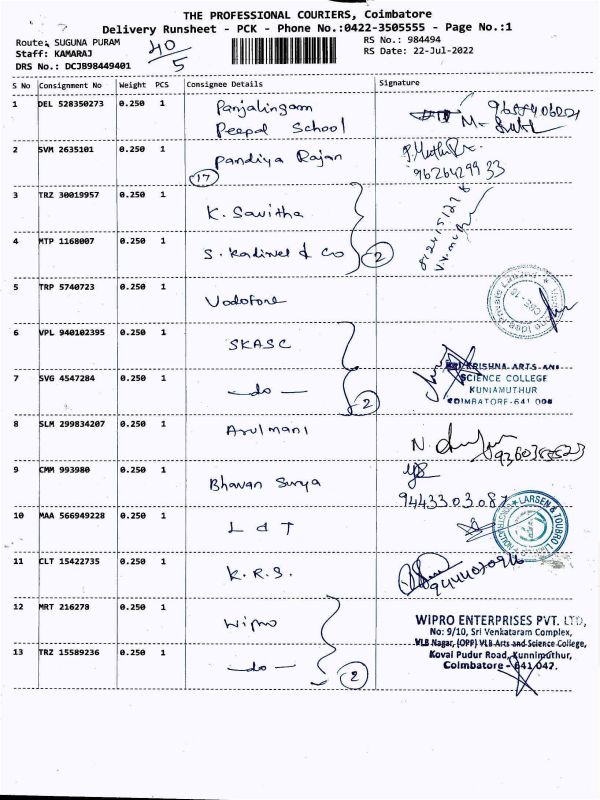 THE PROFESSIONAL COURIERS, Coimbatore
Delivery Runsheet - PCK - Phone No.:0422-3505555 - Page No.:1
Route: SUGUNA PURAM
Staff: KAMARAJ
DRS No.: DCJB98449401
40/5
RS No.: 984494
RS Date: 22-Jul-2022
S No Consignment No Weight PCS Consignee Details Signature
1 DEL 528350273 0.250 1 Panjalingam
Peepal School
2 SVM 2635101 0.250 1 Pandiya Rajan
17
9626429933
3 TRZ 30019957 0.250 1 K. Savitha
4 MTP 1168007 0.250 1 S. Kadirvel & Co 2
5 TRP 5740723 0.250 1 Vodofone
6 VPL 940102395 0.250 1 SKASC
7 SVG 4547284 0.250 1 — do — 2
KRISHNA ARTS AND
SCIENCE COLLEGE
KUNIAMUTHUR
COIMBATORE-641 008
8 SLM 299834207 0.250 1 Arulmani
9 CMM 993980 0.250 1 Bhavan Surya
10 MAA 566949228 0.250 1 L & T
LARSEN & TOUBRO
11 CLT 15422735 0.250 1 K.R.S.
12 MRT 216278 0.250 1 Wipro
13 TRZ 15589236 0.250 1 — do — 2
WIPRO ENTERPRISES PVT. LTD,
No: 9/10, Sri Venkataram Complex,
VLB Nagar, (OPP) VLB Arts and Science College,
Kovai Pudur Road, Kunnimuthur,
Coimbatore - 641 042.